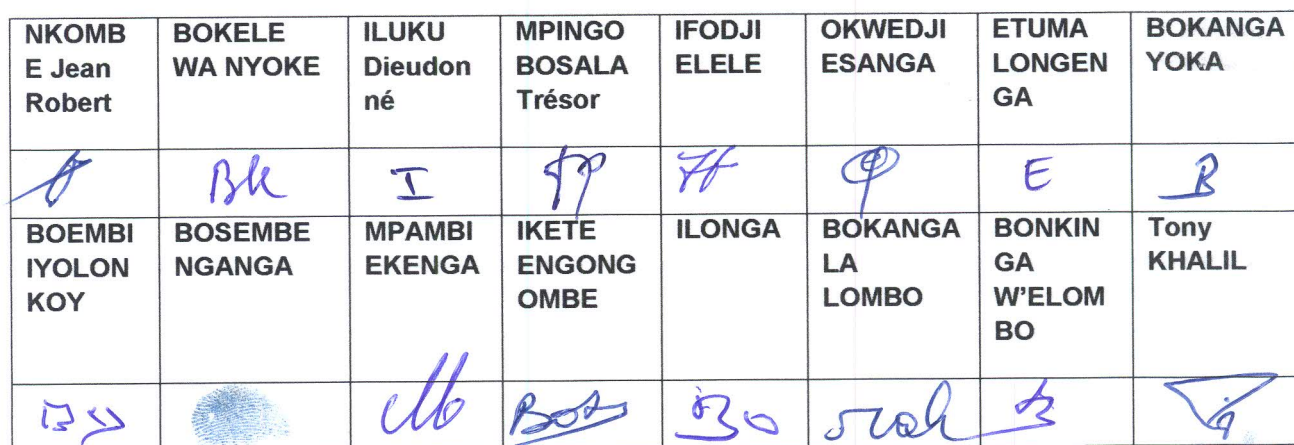 NKOMB
E Jean
Robert
BOKELE
WA NYOKE
ILUKU
Dieudon
né
MPINGO
BOSALA
Trésor
IFODJI
ELELE
OKWEDJI
ESANGA
ETUMA
LONGEN
GA
BOKANGA
YOKA
Bk
I
E
B
BOEMBI
IYOLON
KOY
BOSEMBE
NGANGA
MPAMBI
EKENGA
IKETE
ENGONG
OMBE
ILONGA
BOKANGA
LA
LOMBO
BONKIN
GA
W’ELOM
BO
Tony
KHALIL